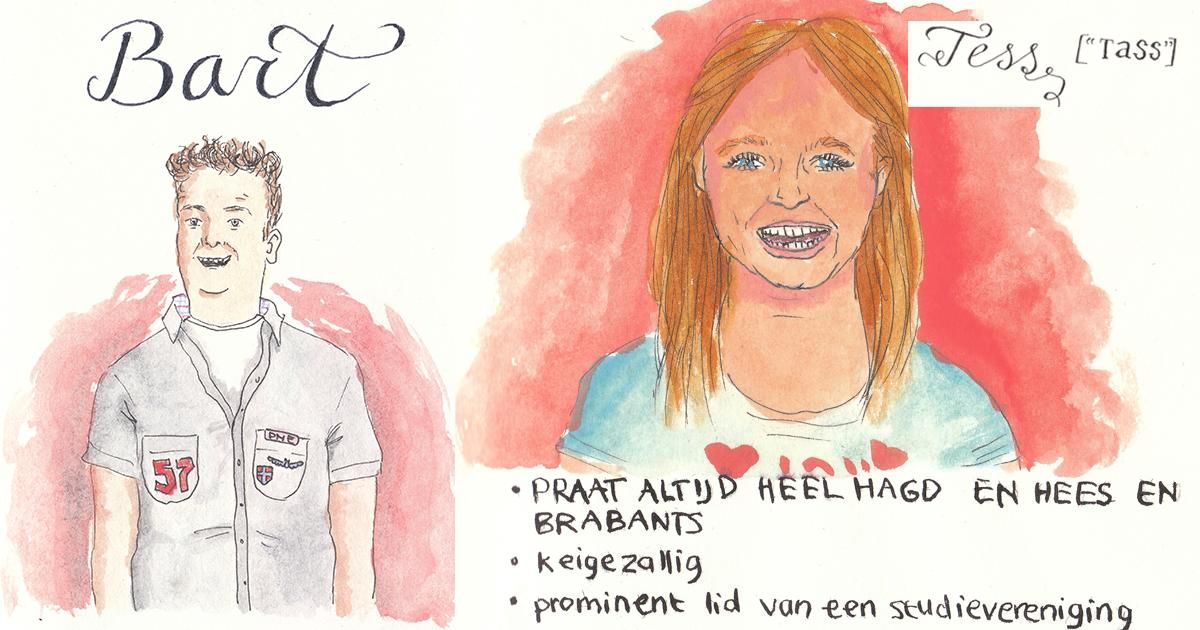 Bart
Tess ["Tass"]
57
PME
PRAAT ALTIJD HEEL HAGD EN HEES EN
BRABANTS
keigezallig
prominent lid van een studievereniging